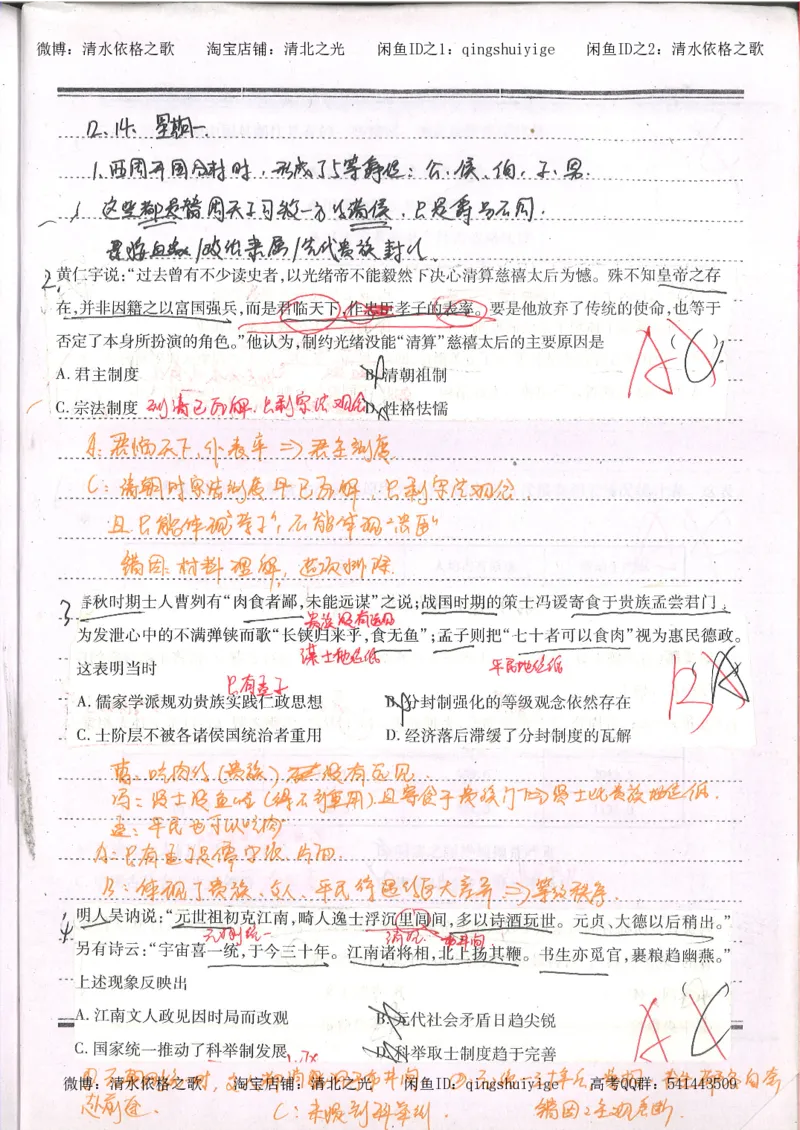 微博：清水依格之歌 淘宝店铺：清北之光 闲鱼ID之1：qingshuiyige 闲鱼ID之2：清水依格之歌
12.14. 星期一.
1. 西周开国分封时，形成了5等爵位：公、侯、伯、子、男.
这些都是替周天子习驭一方的诸侯，只是爵号不同.
2. 黄仁宇说：“过去曾有不少读史者，以光绪帝不能毅然下决心清算慈禧太后为憾。殊不知皇帝之存
在，并非因籍之以富国强兵，而是君临天下，作忠臣孝子的表率。要是他放弃了传统的使命，也等于
否定了本身所扮演的角色。”他认为，制约光绪没能“清算”慈禧太后的主要原因是 （ ）
A C
A. 君主制度 B. 清朝祖制
C. 宗法制度 到清已瓦解，只剩宗法观念 D. 性格怯懦
A：君临天下，作表率 ⇒ 君主制度
C：清朝时宗法制度早已瓦解，只剩宗法观念.
且只能体现“孝子”，不能体现“忠臣”
错因：材料理解，选项排除
3. 春秋时期士人曹刿有“肉食者鄙，未能远谋”之说；战国时期的策士冯谖寄食于贵族孟尝君门，
贵族没有远见
为发泄心中的不满弹铗而歌“长铗归来乎，食无鱼”；孟子则把“七十者可以食肉”视为惠民德政。
谋士地位低 平民地位低
这表明当时
B A
只有孟子
A. 儒家学派规劝贵族实践仁政思想 B. 分封制强化的等级观念依然存在
C. 士阶层不被各诸侯国统治者重用 D. 经济落后滞缓了分封制度的瓦解
曹：吃肉的（贵族）没有远见.
冯：没士没鱼吃（得不到重用）且寄食于贵族门下⇒贤士比贵族地位低.
孟：平民也可以吃肉
A：只有孟子是儒家 片面.
B：体现了贵族、文人、平民待遇的巨大差异 ⇒ 等级秩序.
4. 明人吴讷说：“元世祖初克江南，畸人逸士浮沉里闾间，多以诗酒玩世。元贞、大德以后稍出。”
元刚统一
另有诗云：“宇宙喜一统，于今三十年。江南诸将相，北上扬其鞭。书生亦觅官，裹粮趋幽燕。”
上述现象反映出
A C
A. 江南文人政见因时局而改观 B. 元代社会矛盾日趋尖锐
C. 国家统一推动了科举制发展 D. 科举取士制度趋于完善
微博：清水依格之歌 淘宝店铺：清北之光 闲鱼ID：qingshuiyige 高考QQ群：541443509
赴前途. C：未提到科举制. 错因：主观臆断.